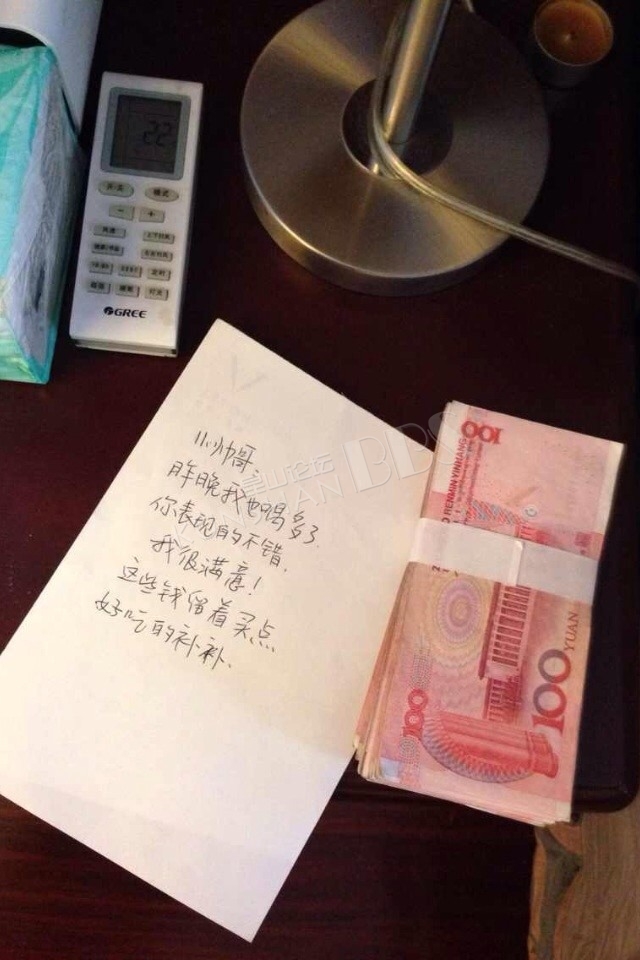 22
开/关
模式
GREE
小帅哥,
昨晚我也喝多了.
你表现的不错,
我很满意!
这些钱留着买点
好吃的补补.
100
RENMIN YINHANG
100
100
YUAN
皇山论坛
BBS